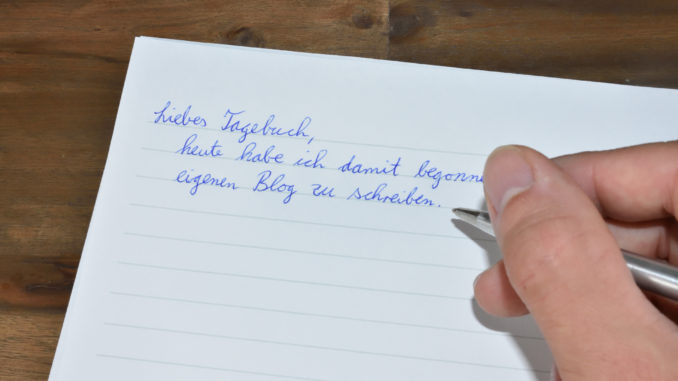 Liebes Tagebuch,
heute habe ich damit
eigenen Blog zu schreiben.